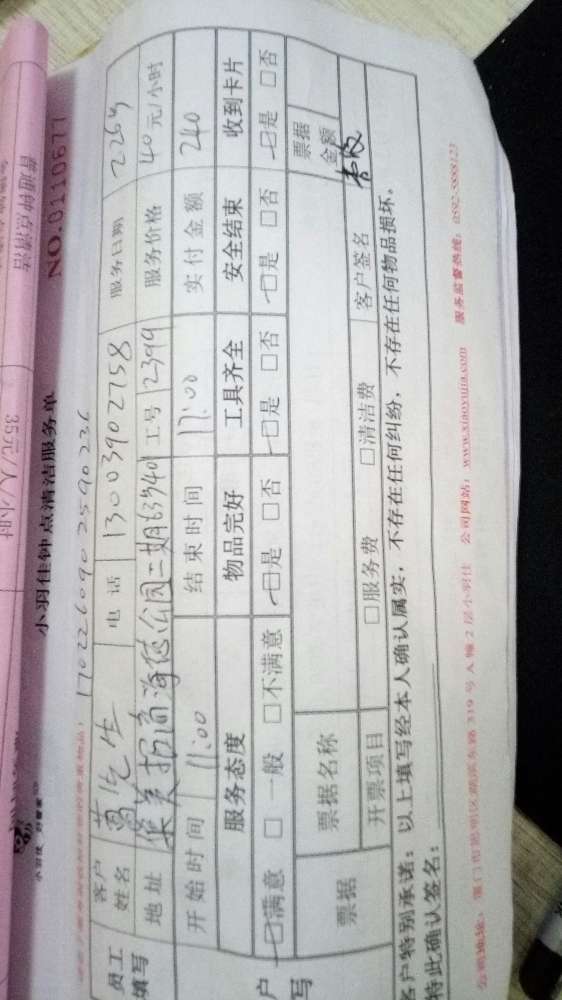 普通钟点清洁
35元/人/小时
小羽佳钟点清洁服务单
NO.0110677
1702260902590236
员工填写
客户姓名
电话 13003902758 服务日期
地址 工号 2399 服务价格 40元/小时
开始时间 11:00 结束时间 17:00 实付金额 240
服务态度 物品完好 工具齐全 安全结束 收到卡片
☑满意 □一般 □不满意 ☑是 □否 ☑是 □否 ☑是 □否 ☑是 □否
票据 票据名称 票据金额
开票项目 □服务费 □清洁费 客户签名
客户特别承诺：以上填写经本人确认属实，不存在任何纠纷，不存在任何物品损坏。
特此确认签名：
公司网站：www.xiaoyujia.com 服务监督热线：0592-5888123